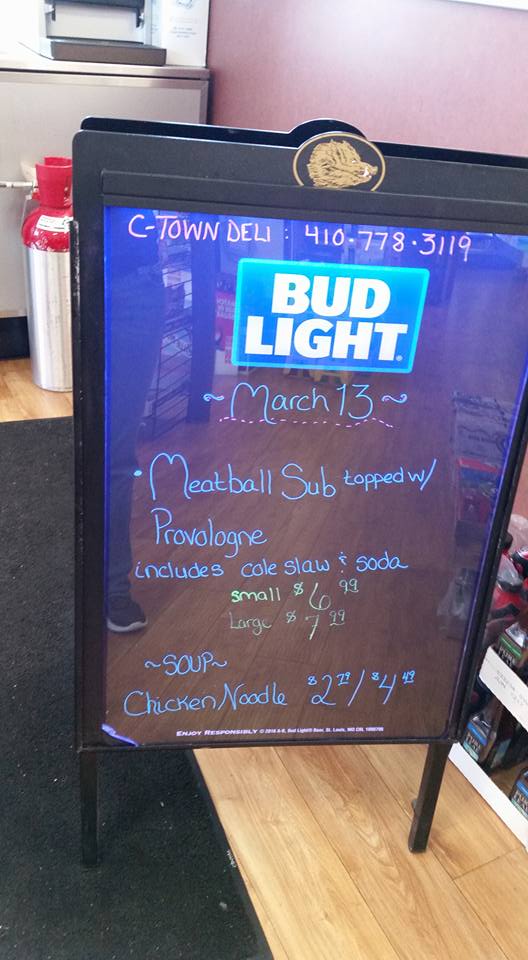 C-TOWN DELI : 410·778·3119
BUD
LIGHT
~ March 13 ~
• Meatball Sub topped w/
Provologne
includes cole slaw & soda
small $6.99
Large $7.99
~SOUP~
Chicken Noodle $2.79 / $4.49
ENJOY RESPONSIBLY © 2016 A-B, Bud Light® Beer, St. Louis, MO